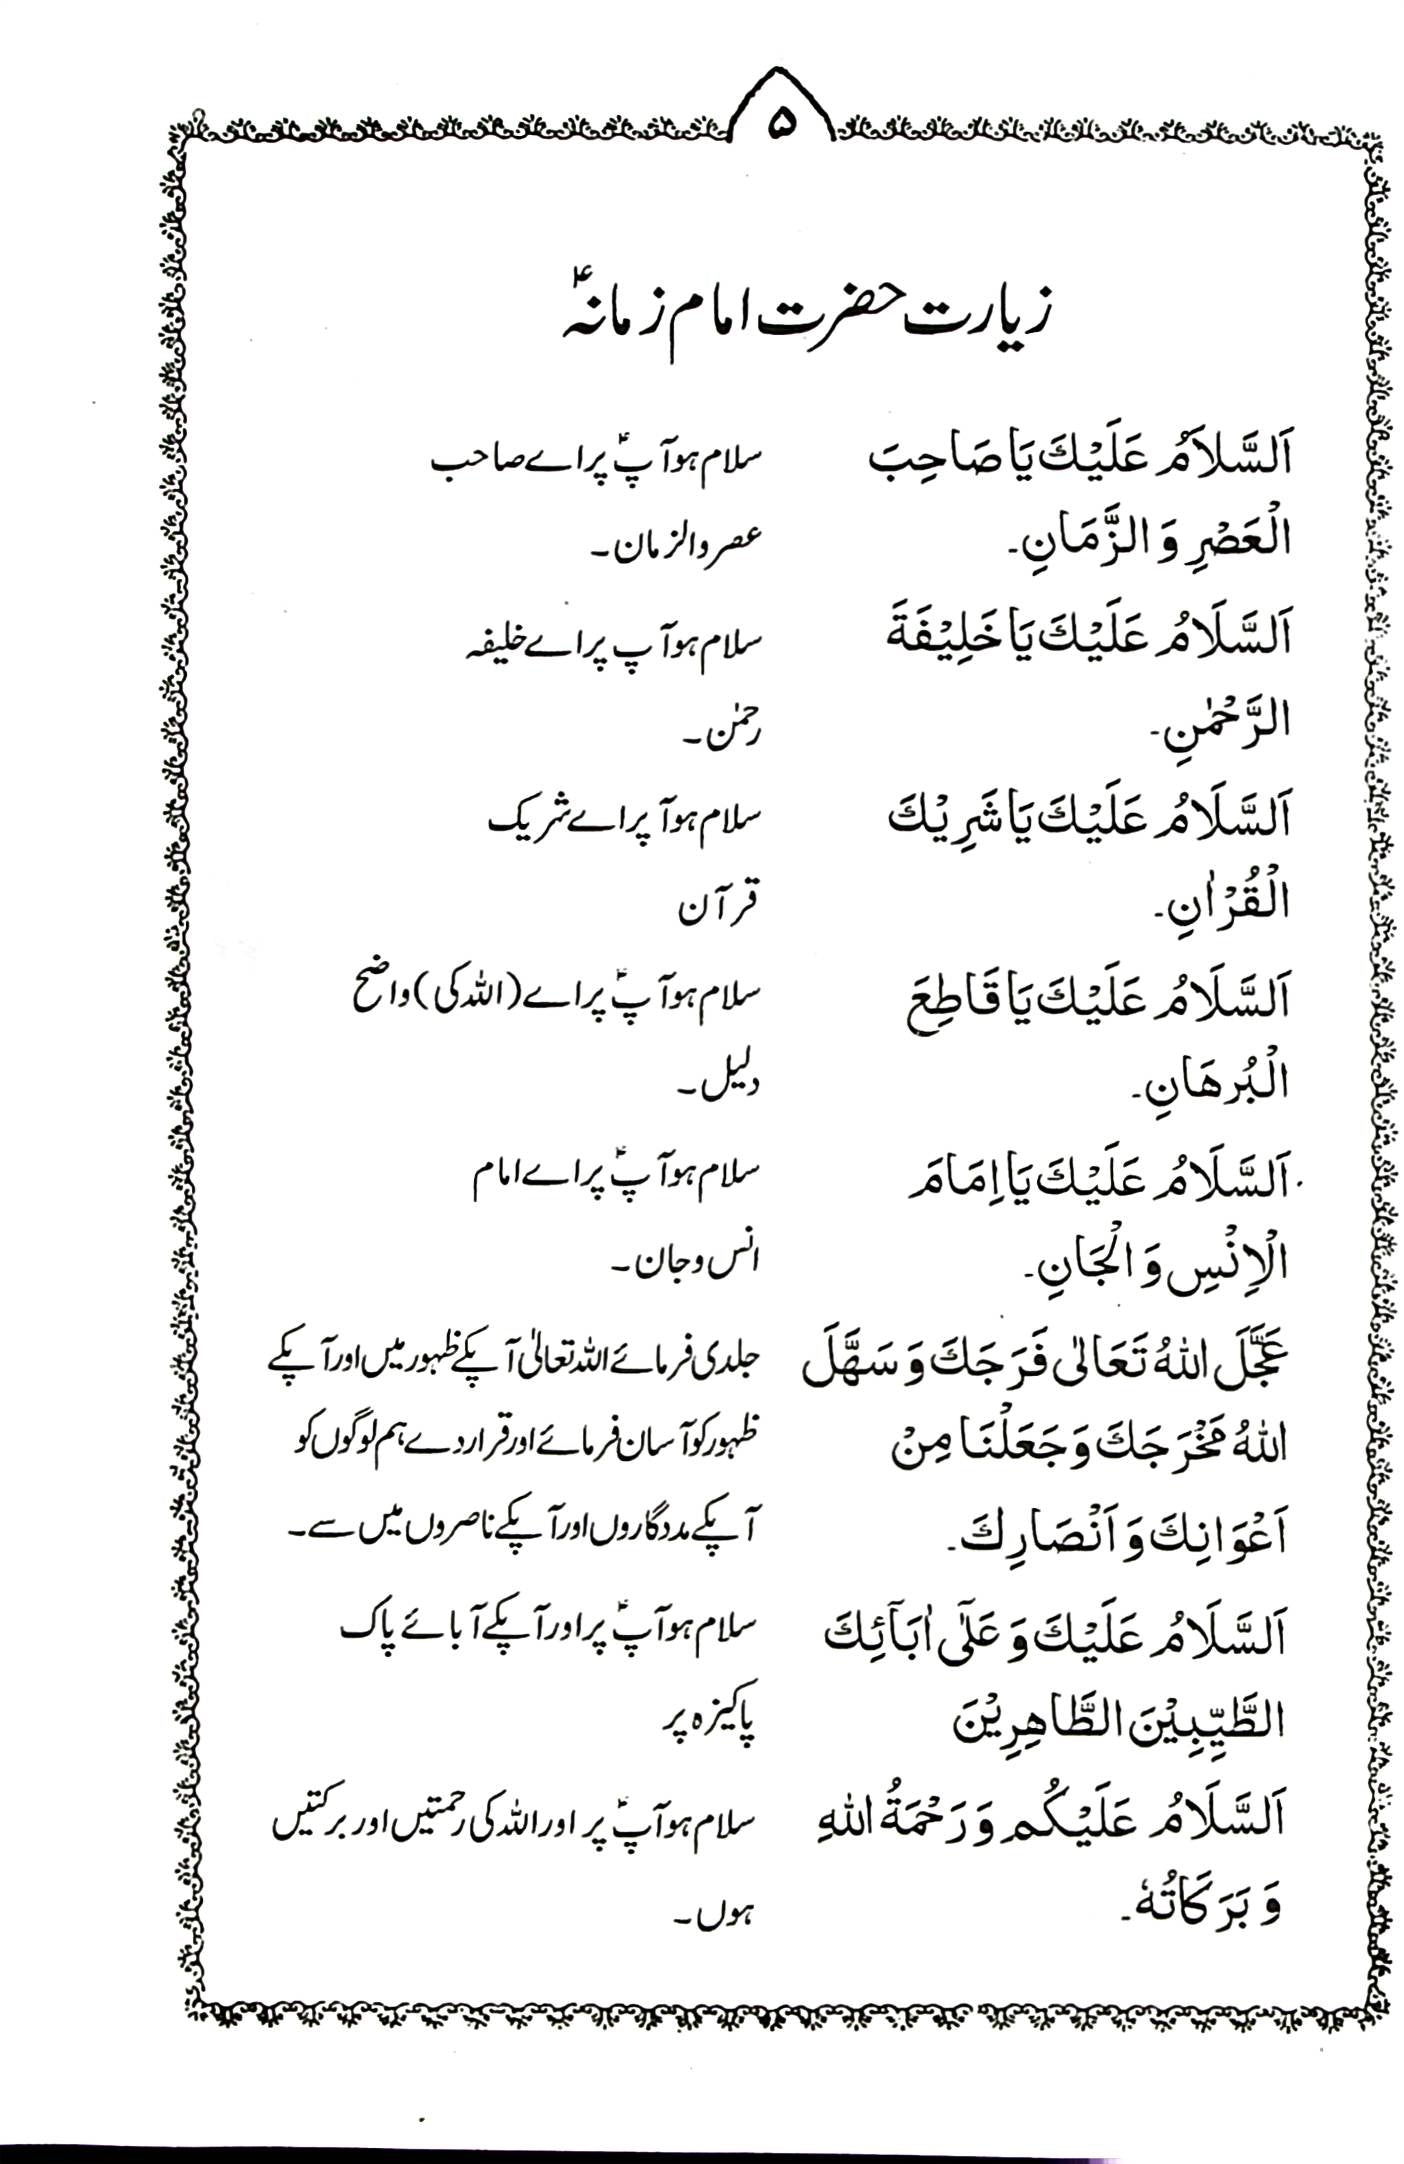 ۵
زیارت حضرت امام زمانہؑ
اَلسَّلاَمُ عَلَيْكَ يَا صَاحِبَ سلام ہو آپؑ پر اے صاحب
الْعَصْرِ وَ الزَّمَانِ۔ عصر والزمان۔
اَلسَّلَامُ عَلَيْكَ يَا خَلِيْفَةَ سلام ہو آپ پر اے خلیفہ
الرَّحْمٰنِ۔ رحمٰن۔
اَلسَّلَامُ عَلَيْكَ يَا شَرِيْكَ سلام ہو آپر اے شریک
الْقُرْاٰنِ۔ قرآن
اَلسَّلَامُ عَلَيْكَ يَا قَاطِعَ سلام ہو آپؑ پر اے (اللہ کی) واضح
الْبُرهَانِ۔ دلیل۔
اَلسَّلَامُ عَلَيْكَ يَا اِمَامَ سلام ہو آپؑ پر اے امام
الْاِنْسِ وَ الْجَانِ۔ انس و جان۔
عَجَّلَ اللهُ تَعَالٰى فَرَجَكَ وَ سَهَّلَ جلدی فرمائے اللہ تعالیٰ آپکے ظہور میں اور آپکے
اللهُ مَخْرَجَكَ وَ جَعَلْنَا مِنْ ظہور کو آسان فرمائے اور قرار دے ہم لوگوں کو
اَعْوَانِكَ وَ اَنْصَارِكَ۔ آپکے مددگاروں اور آپکے ناصروں میں سے۔
اَلسَّلَامُ عَلَيْكَ وَ عَلٰٓى اٰبَآئِكَ سلام ہو آپؑ پر اور آپکے آبائے پاک
الطَّيِّبِيْنَ الطَّاهِرِيْنَ پاکیزہ پر
اَلسَّلَامُ عَلَيْكُم وَ رَحْمَةُ اللهِ سلام ہو آپؑ پر اور اللہ کی رحمتیں اور برکتیں
وَ بَرَكَاتُهٗ۔ ہوں۔